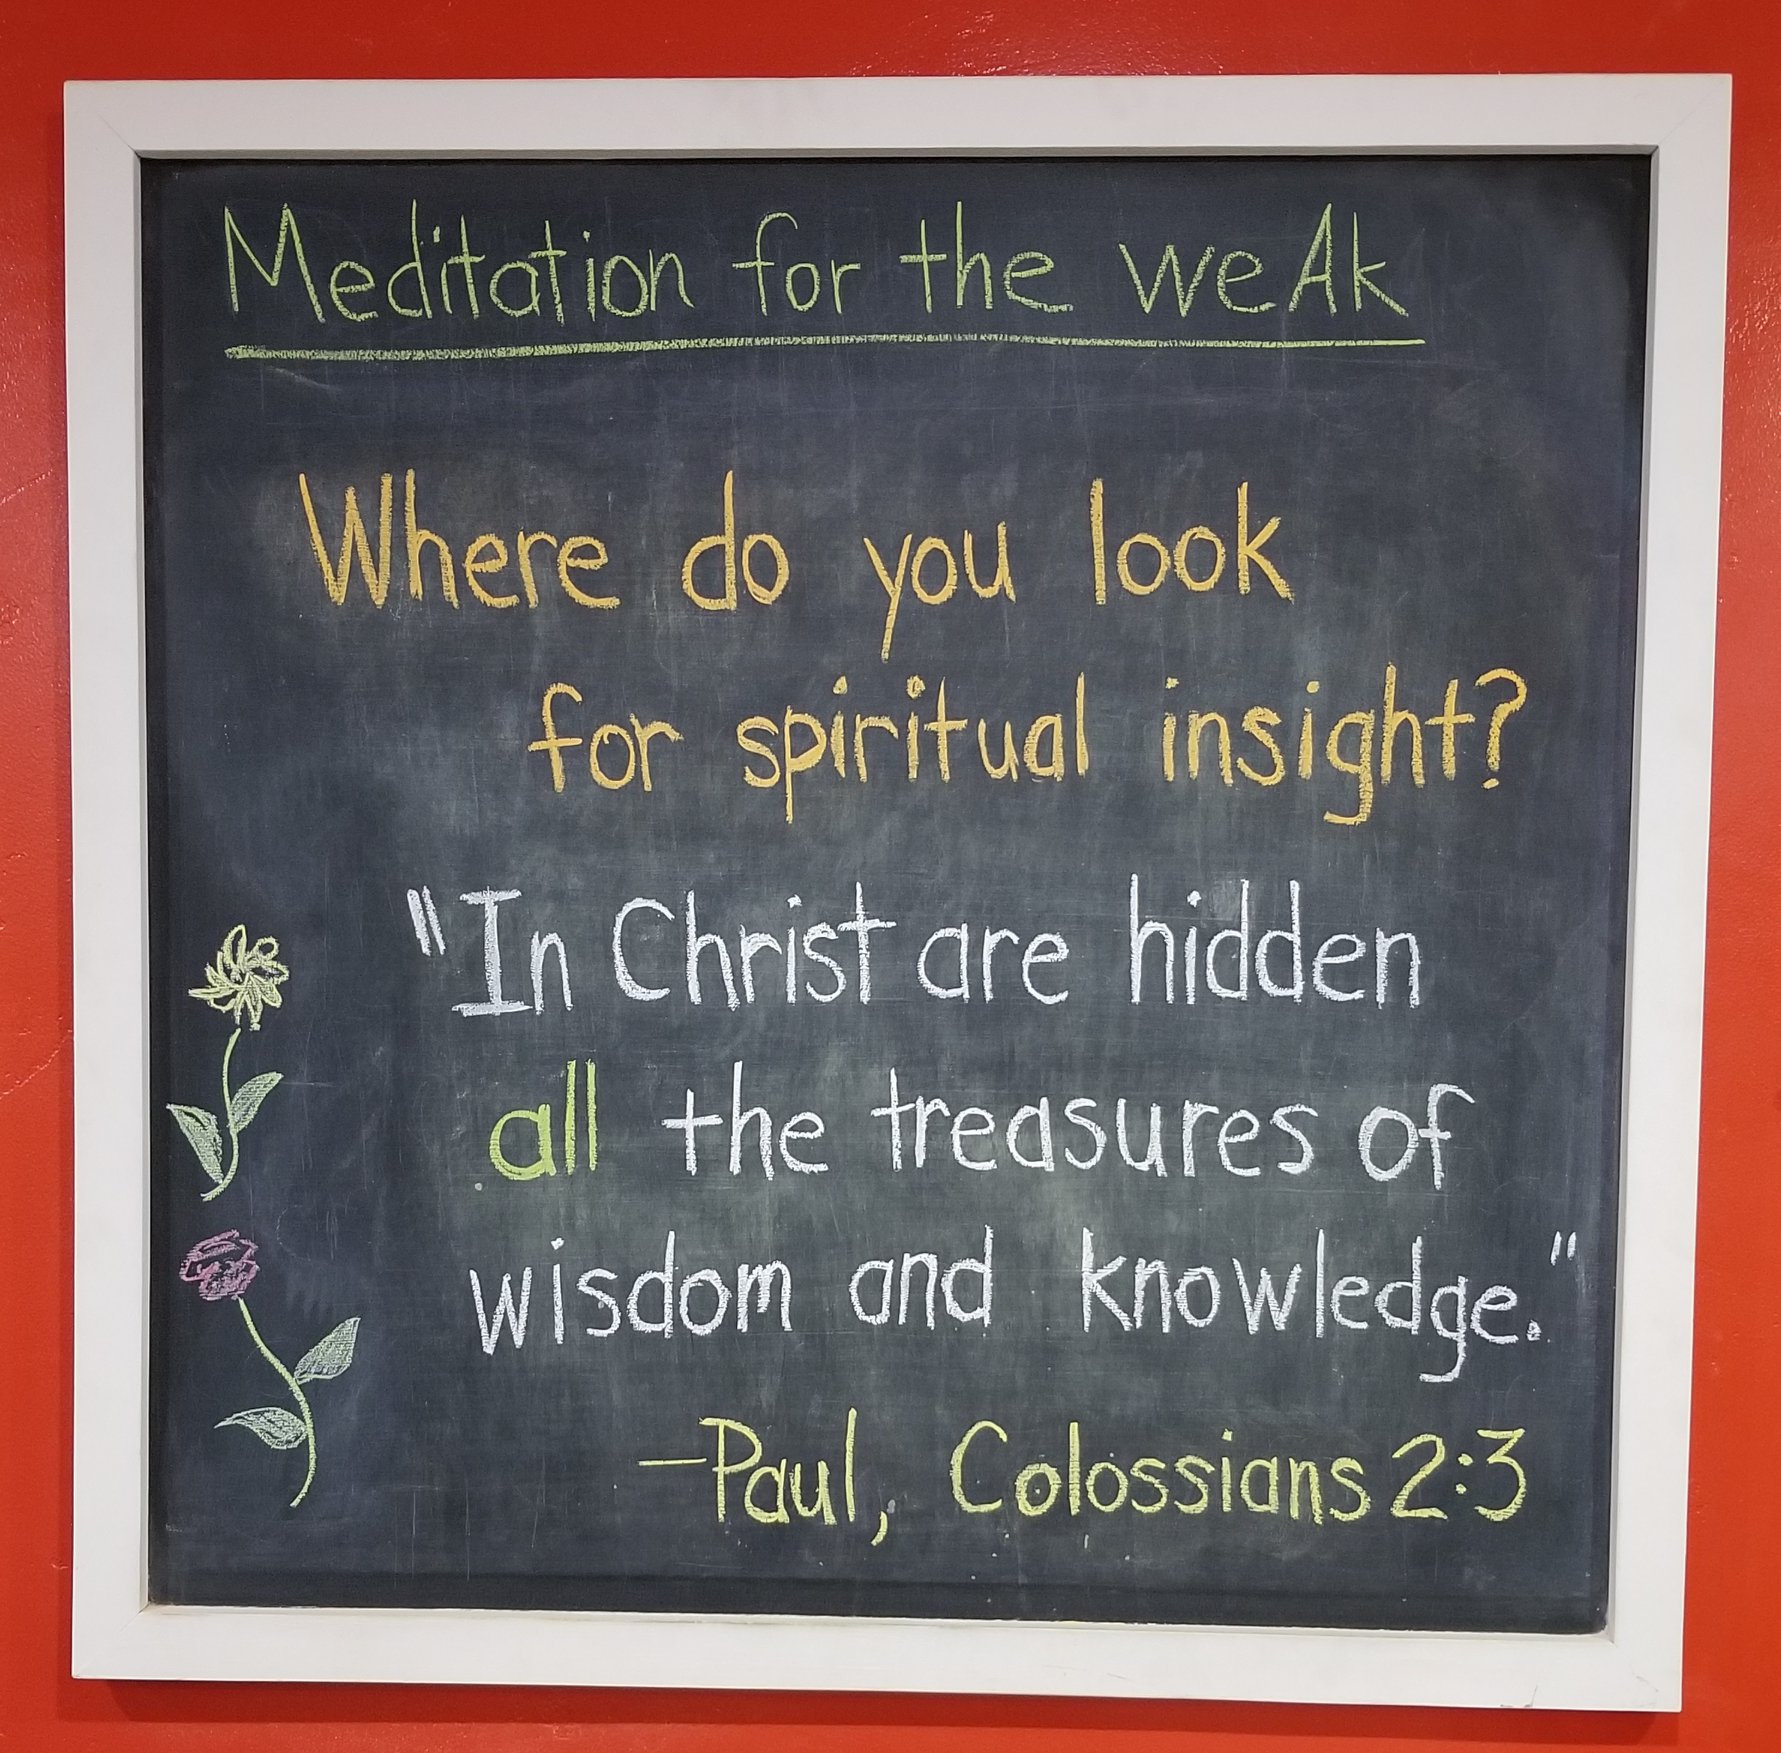 Meditation for the weAk
Where do you look
for spiritual insight?
"In Christ are hidden
all the treasures of
wisdom and knowledge."
—Paul, Colossians 2:3